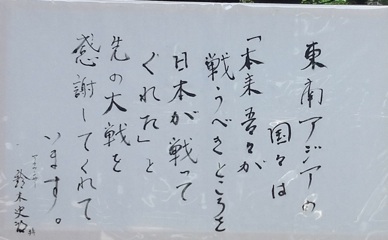 東南アジアの
国々は
「本来吾々が
戦うべきところを
日本が戦って
くれた」と
先の大戦を
感謝してくれて
います。